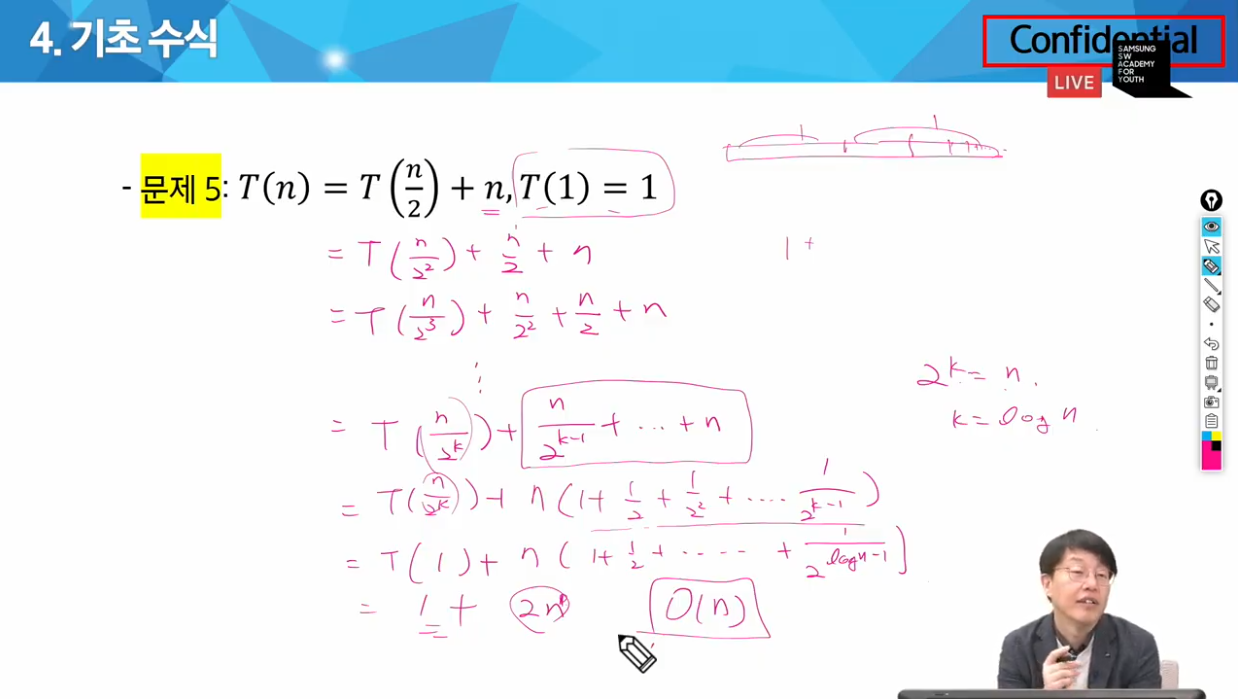 4. 기초 수식
Confidential
LIVE
SAMSUNG
SW
ACADEMY
FOR
YOUTH
1 1
- 문제 5: T(n) = T(n/2) + n, T(1) = 1
= T(n/2²) + n/2 + n
1 +
= T(n/2³) + n/2² + n/2 + n
⋮
2^k = n
k = log n
= T(n/2^k) + n/2^(k-1) + ... + n
= T(n/2^k) + n(1 + 1/2 + 1/2² + .... 1/2^(k-1))
= T(1) + n(1 + 1/2 + ..... + 1/2^(log n-1))
= 1 + 2n O(n)